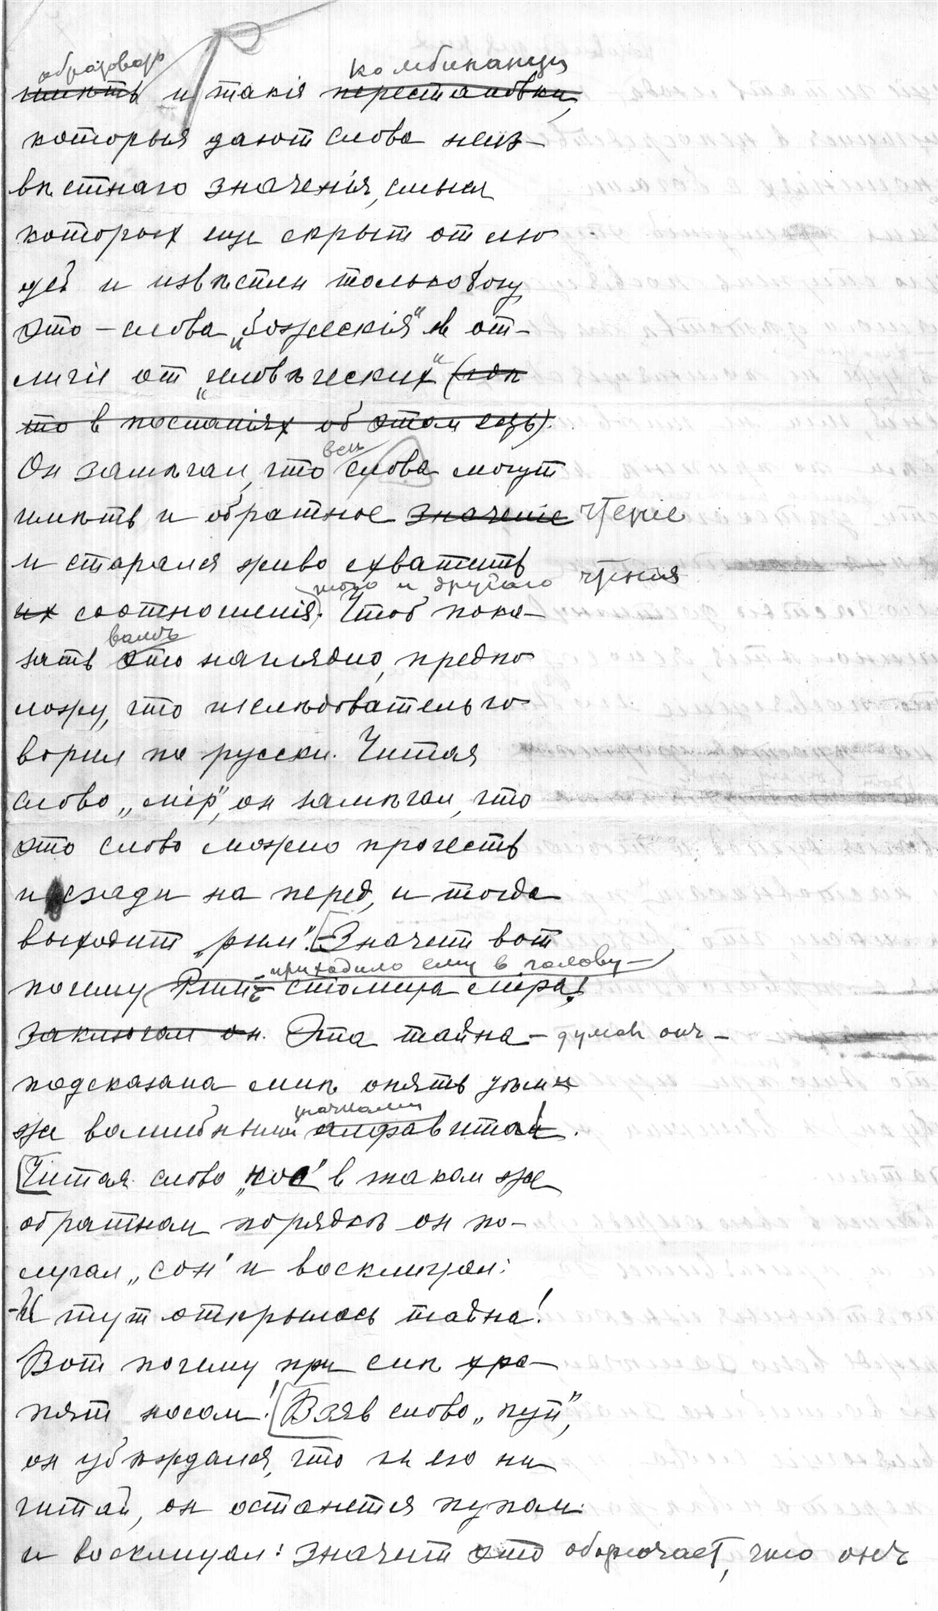 образовать комбинации
имѣть и такія перестановки,
которыя дают слова неиз-
вѣстнаго значенія, смысл
которых еще скрыт от лю-
дей и извѣстен только богу
Это – слова „божескія“ в от-
личіе от „человѣческих“ (гдѣ
то в посланіях об этом есть).
всѣ
Он замѣчал, что слова могут
имѣть и обратное значеніе чтеніе
и старался живо схватить
того и другого чтенія
их соотношенія. Чтоб пока-
вамъ
зать это наглядно, предпо-
ложу, что изслѣдователь го-
ворил по русски. Читая
слово „мір“, он замѣчал, что
это слово можно прочесть
и сзади на перед, и тогда
выходит „рим“. Значит вот
– приходило ему в голову –
почему Римъ столица міра!
заключал он. Эта тайна – думал онъ –
подсказана мнѣ опять
значками
же волшебными алфавита.
Читая слово „нос“ в таком же
обратном порядкѣ он по-
лучал „сон“ и восклицал:
– И тут открылась тайна!
Вот почему при снѣ хра-
пят носом! Взяв слово „пуп“,
он убѣждался, что как его ни
читай, он останется пупом
и восклицал: значит это обозначает, что онъ